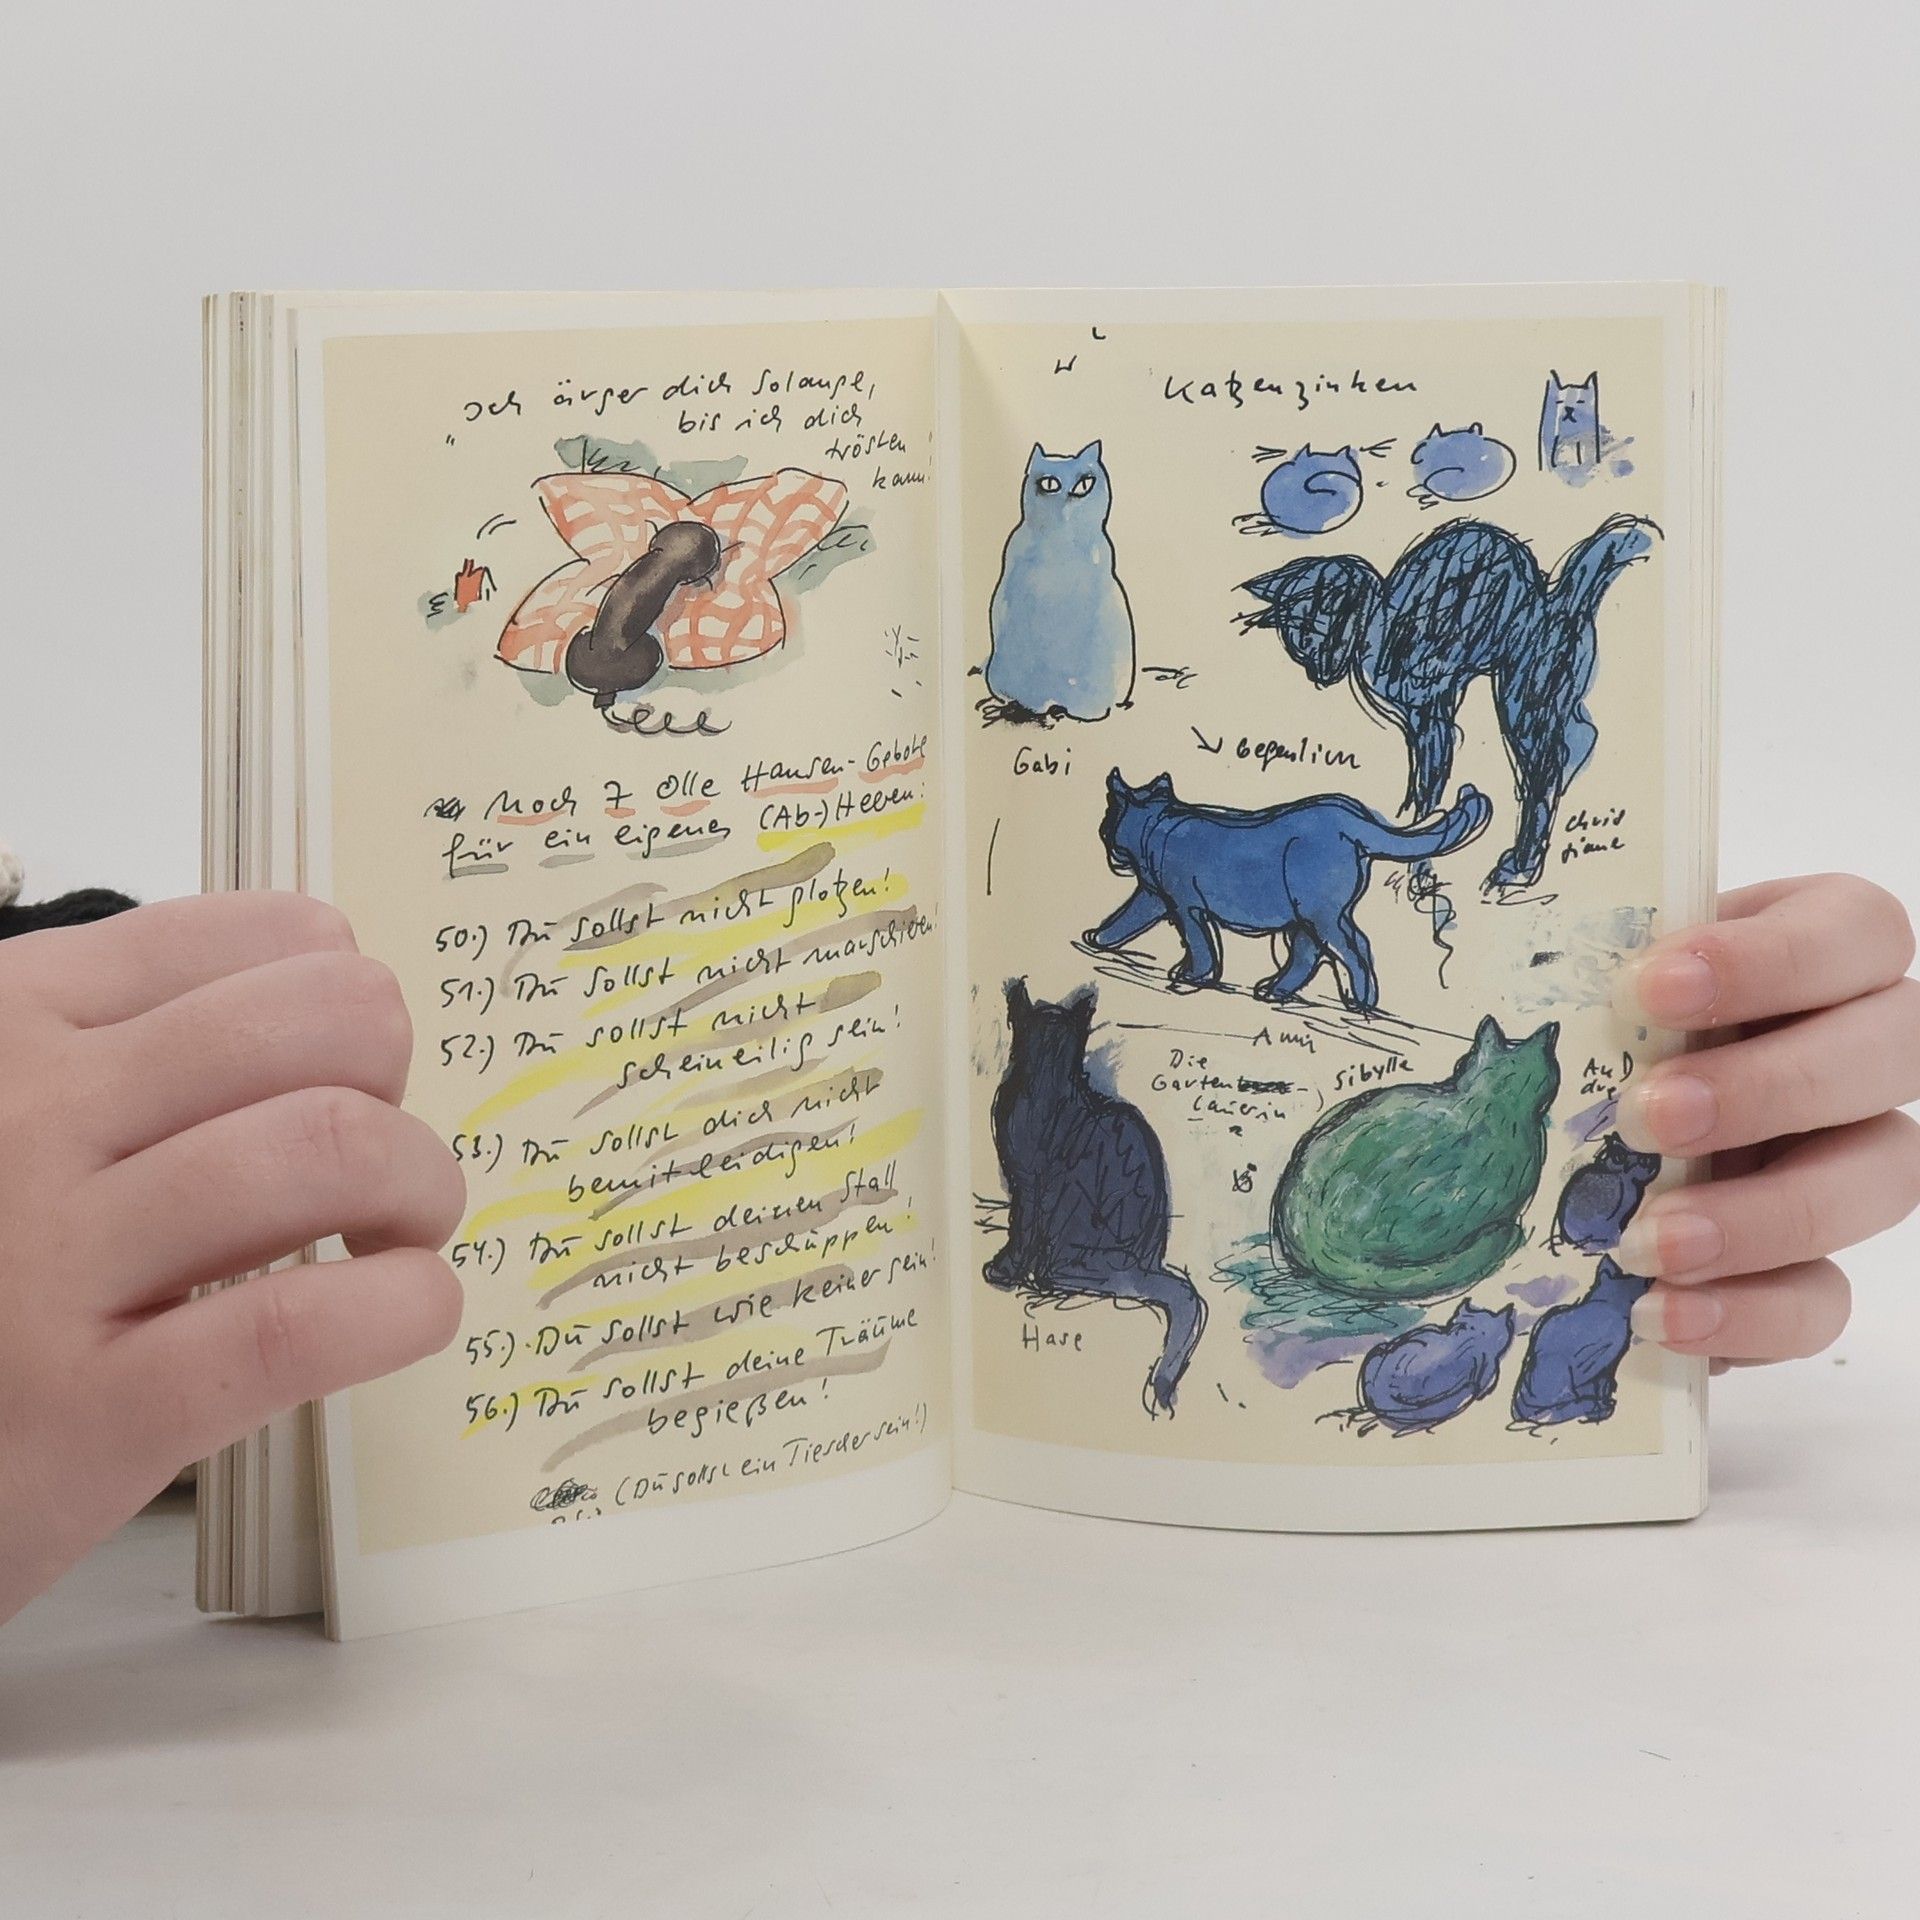 "Ich ärger dich solange,
bis ich dich
trösten
kann!"
Noch 7 olle Hausen-Gebote
für ein eigenes (Ab-)Heben:
50.) Du sollst nicht glotzen!
51.) Du sollst nicht marschieren!
52.) Du sollst nicht
scheineilig sein!
53.) Du sollst dich nicht
bemitleidigen!
54.) Du sollst deinen Stall
nicht beschuppen!
55.) Du sollst wie keiner sein!
56.) Du sollst deine Träume
begießen!
(Du sollst ein sein!)
Katzenzinken
Gabi
Gegenlicht
Chris
tiane
Die
Garten
Lauerin
Sibylle
AnD
dre
Hase